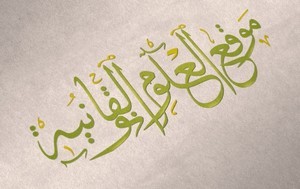 موقع العلوم القانونية